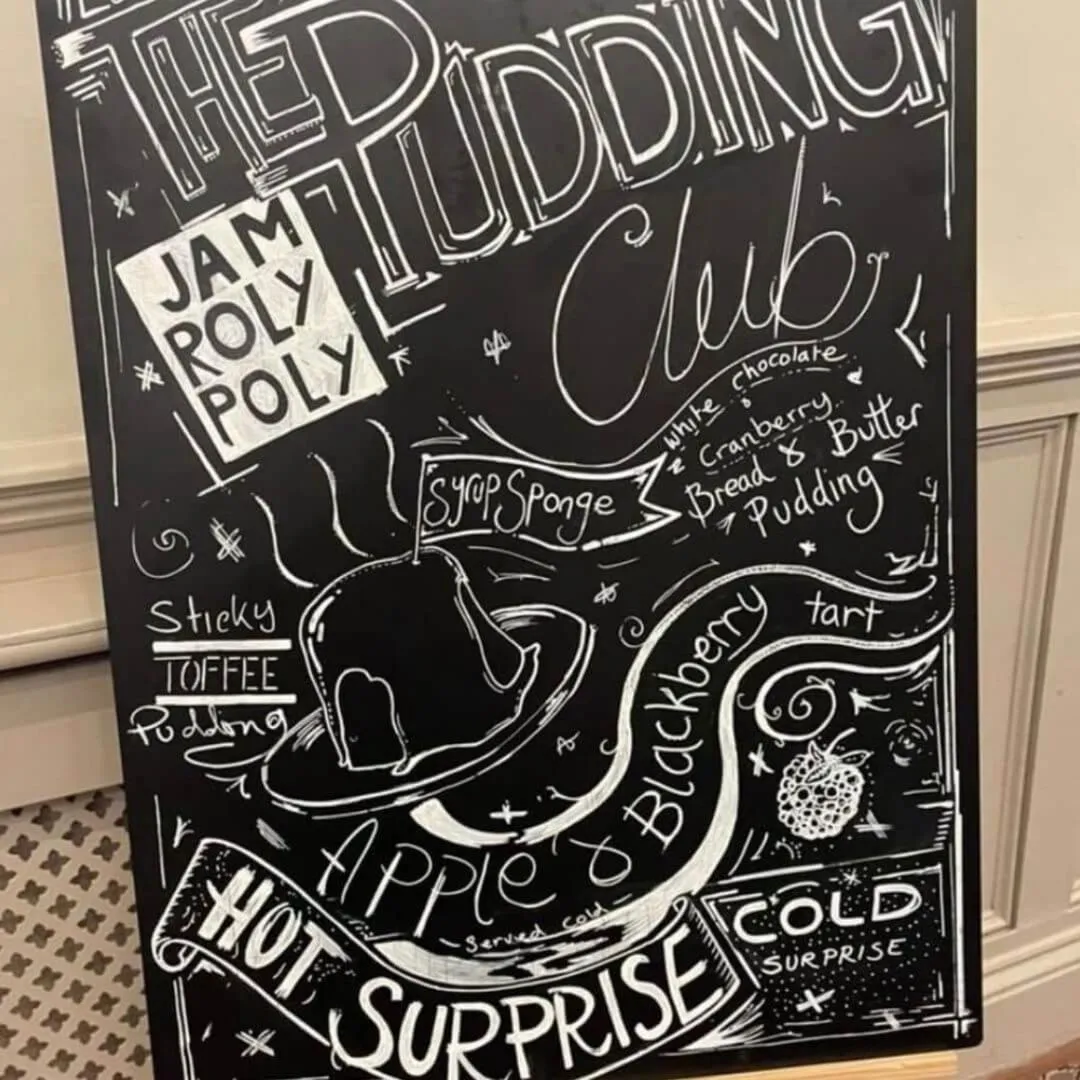 THE PUDDING
Club
JAM
ROLY
POLY
White chocolate
& Cranberry
Bread & Butter
Pudding
Syrup Sponge
Sticky
TOFFEE
Pudding
Apple & Blackberry tart
~ served cold ~
HOT SURPRISE
COLD
SURPRISE